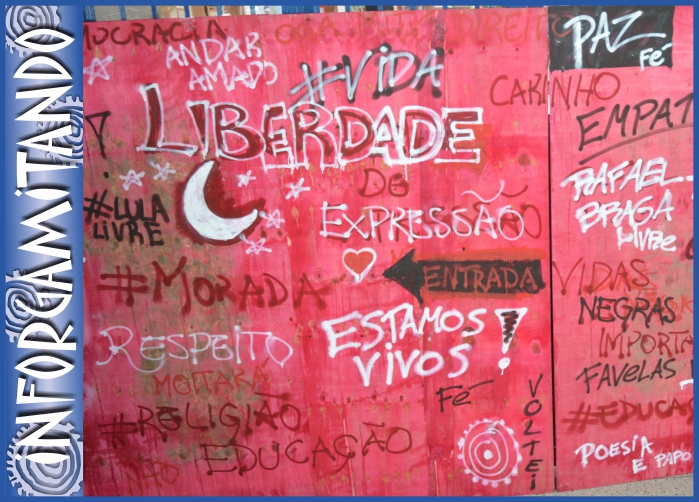 INFORGAMITANDO
MOCRACIA
DIREITO
ANDAR
AMADO
#VIDA
LIBERDADE
DE
EXPRESSÃO
#LULA
LIVRE
#MORADA
ENTRADA
RESPEITO
ESTAMOS
VIVOS!
MOTTARA
#RELIGIÃO
EDUCAÇÃO
Fé
VOLTEI
PAZ
Fé
CARINHO
EMPAT
RAFAEL
BRAGA
LIVRE
VIDAS
NEGRAS
IMPORTA
FAVELAS
#EDUCA
POESIA
E PAPO